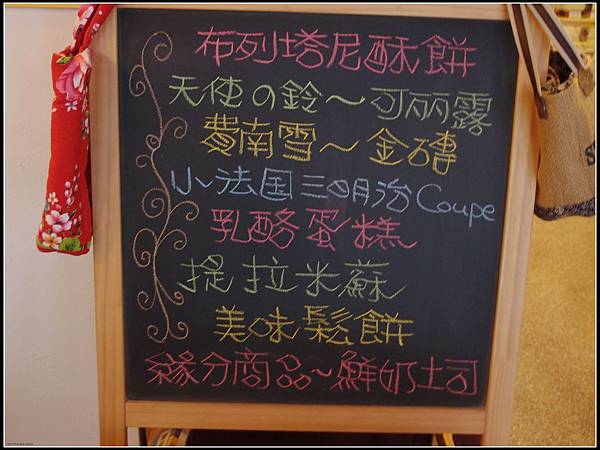 布列塔尼酥餅
天使の鈴～可丽露
費南雪～金磚
小法国三明治Coupe
乳酪蛋糕
提拉米蘇
美味鬆餅
緣分商品～鮮奶土司